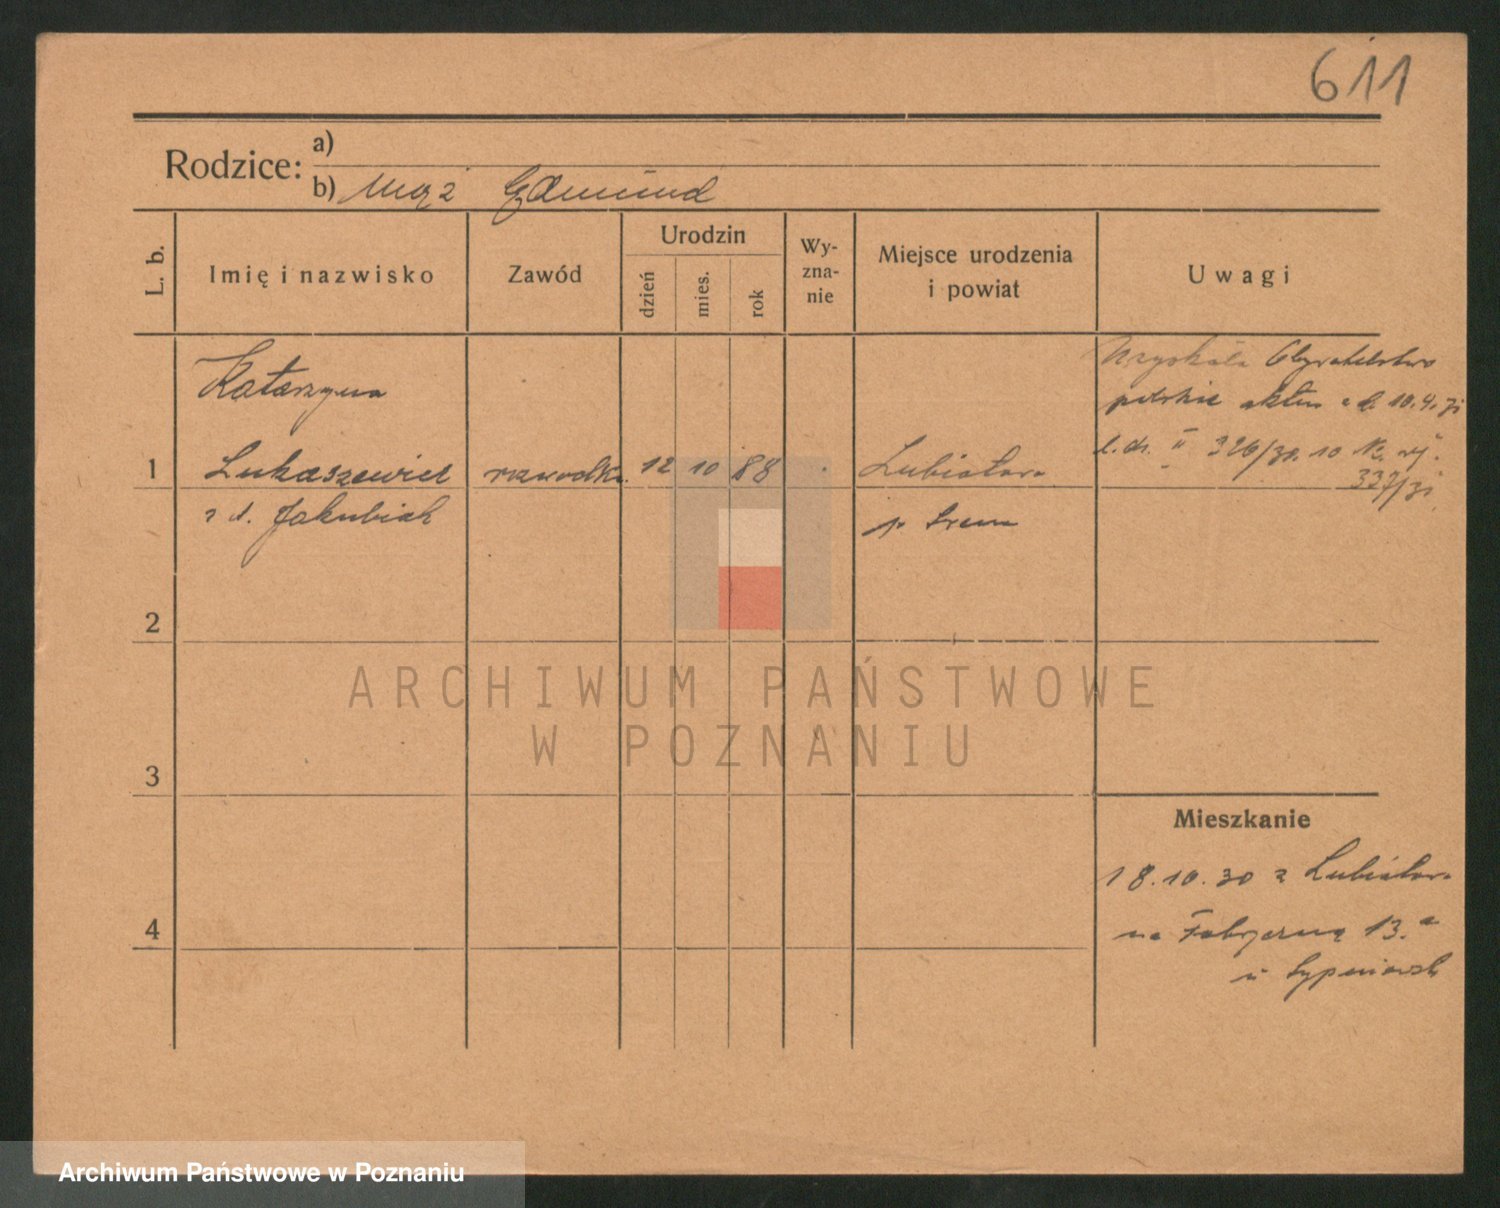 611
Rodzice:
a)
b) Mąż Edmund
L. b.
Imię i nazwisko
Zawód
Urodzin
dzień
mies.
rok
Wy-
zna-
nie
Miejsce urodzenia
i powiat
Uwagi
Katarzyna
1 Łukaszewicz rozwódka 12 10 88 Lubiatowo
z d. Jakubiak
p. Śrem
Uzyskała Obywatelstwo
polskie aktem z d. 10.4.31
l. dz. II 326/30. 10
337/31
2
3
4
Mieszkanie
18.10.30 z Lubiatowo
na Fabryczną 13.a
u
ARCHIWUM PAŃSTWOWE
W POZNANIU
Archiwum Państwowe w Poznaniu